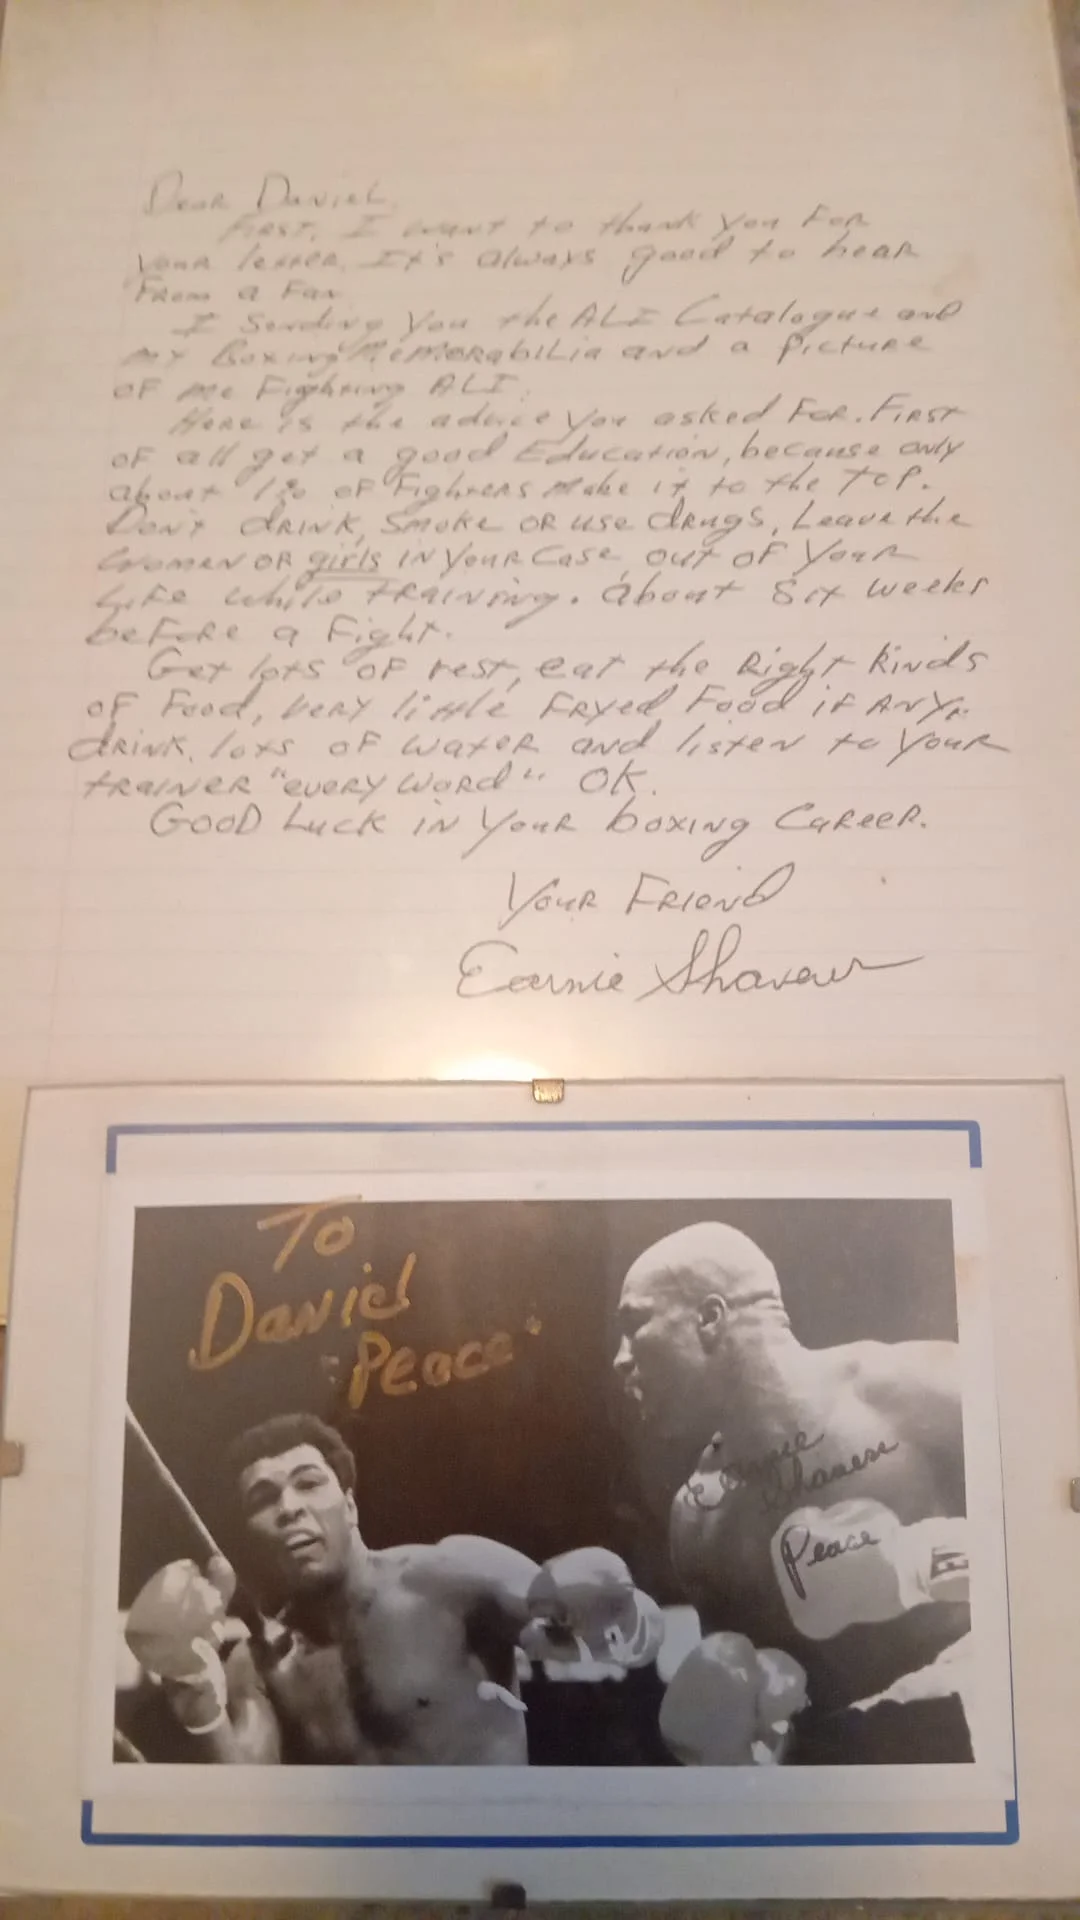 Dear Daniel,
First, I want to thank you For
your letter. It's always good to hear
From a Fan.
I Sending You the ALI Catalogue and
my Boxing Memorabilia and a picture
of me Fighting ALI.
Here is the advice you asked For. First
of all get a good Education, because only
about 1% of Fighters make it to the top.
Don't drink, smoke or use drugs, Leave the
women or girls in your case, out of your
life while training. about six weeks
before a Fight.
Get lots of rest, eat the Right Kinds
of Food, very little Fryed Food if any.
drink lots of water and listen to your
trainer "every word" OK.
Good Luck in your boxing Career.
Your Friend
Earnie Shavers
To
Daniel
"Peace"
Earnie
Shavers
Peace